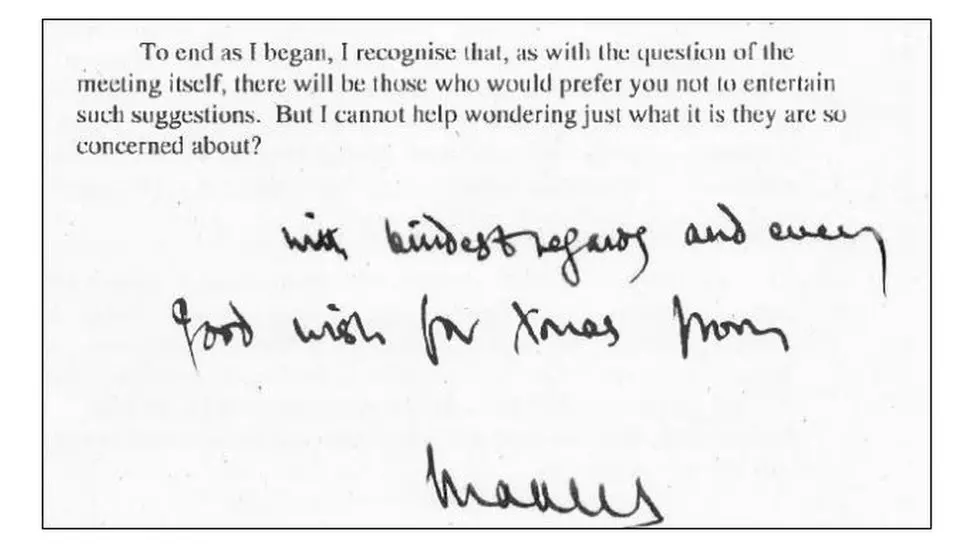 To end as I began, I recognise that, as with the question of the
meeting itself, there will be those who would prefer you not to entertain
such suggestions. But I cannot help wondering just what it is they are so
concerned about?
with kindest regards and every
good wish for Xmas from